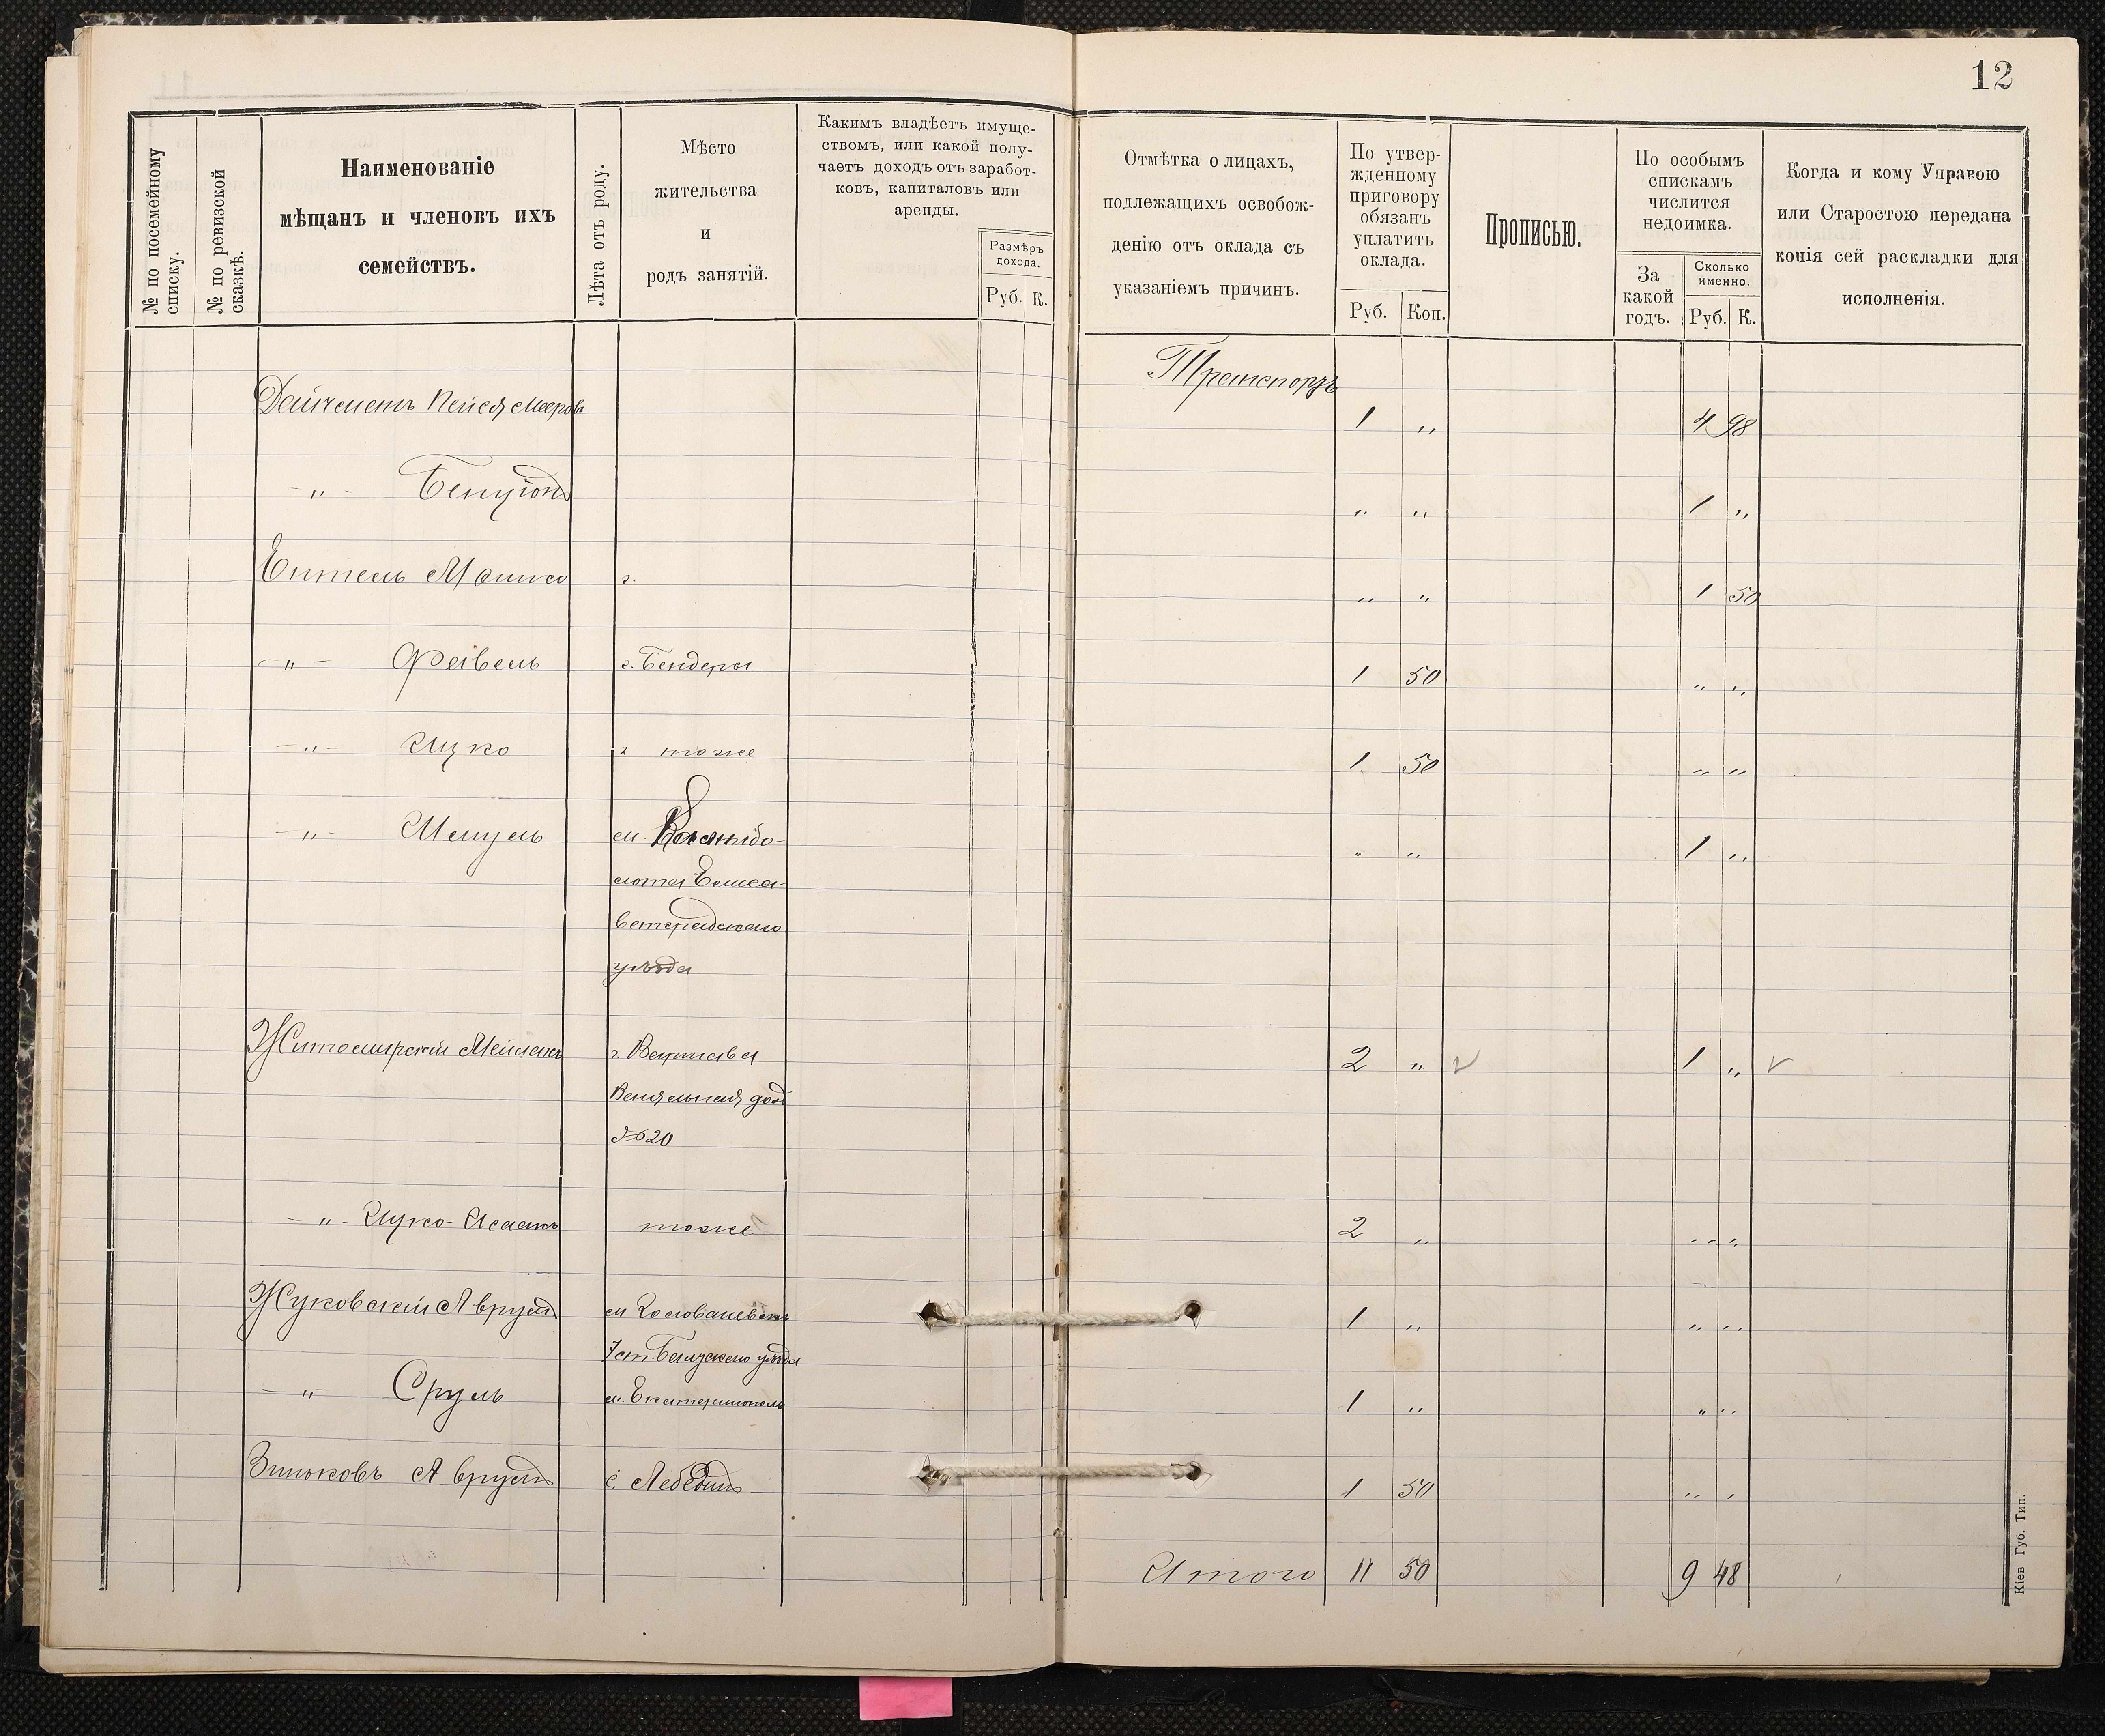 12
№ по посемейному списку.
№ по ревизской сказкѣ.
Наименованіе
мѣщанъ и членовъ ихъ
семействъ.
Лѣта отъ роду.
Мѣсто
жительства
и
родъ занятій.
Какимъ владѣетъ имуще-
ствомъ, или какой полу-
чаетъ доходъ отъ заработ-
ковъ, капиталовъ или
аренды.
Размѣръ
дохода.
Руб. К.
Отмѣтка о лицахъ,
подлежащихъ освобож-
денію отъ оклада съ
указаніемъ причинъ.
По утвер-
жденному
приговору
обязанъ
уплатить
оклада.
Руб. Коп.
Прописью.
По особымъ
спискамъ
числится
недоимка.
За
какой
годъ.
Сколько
именно.
Руб. К.
Когда и кому Управою
или Старостою передана
копія сей раскладки для
исполненія.
Транспортъ
Дайчманъ Пейся Мееровъ 1 „ 4 98
-„- Бенціонъ „ „ 1 „
Ентель Мошко г. „ „ 1 50
-„- Фейвель г. Бендеры 1 50 „ „
-„- Ицко г. тоже 1 50 „ „
-„- Шмуль м. „ „ 1 „
Елиса-
ветградскаго
уѣзда
Житомирскій Мейлахъ г. Варшава 2 „ V 1 „ V
домъ
№ 20
-„- Ицко-Исаакъ тоже 2 „ „ „
Жуковскій Аврумъ м. Голованевскъ 1 „ „ „
уѣзда
-„- Сруль м. Екатеринополь 1 „ „ „
Зиньковъ Аврумъ с. Лебединъ 1 50 „ „
Итого 11 50 9 48
Кіев Губ. Тип.